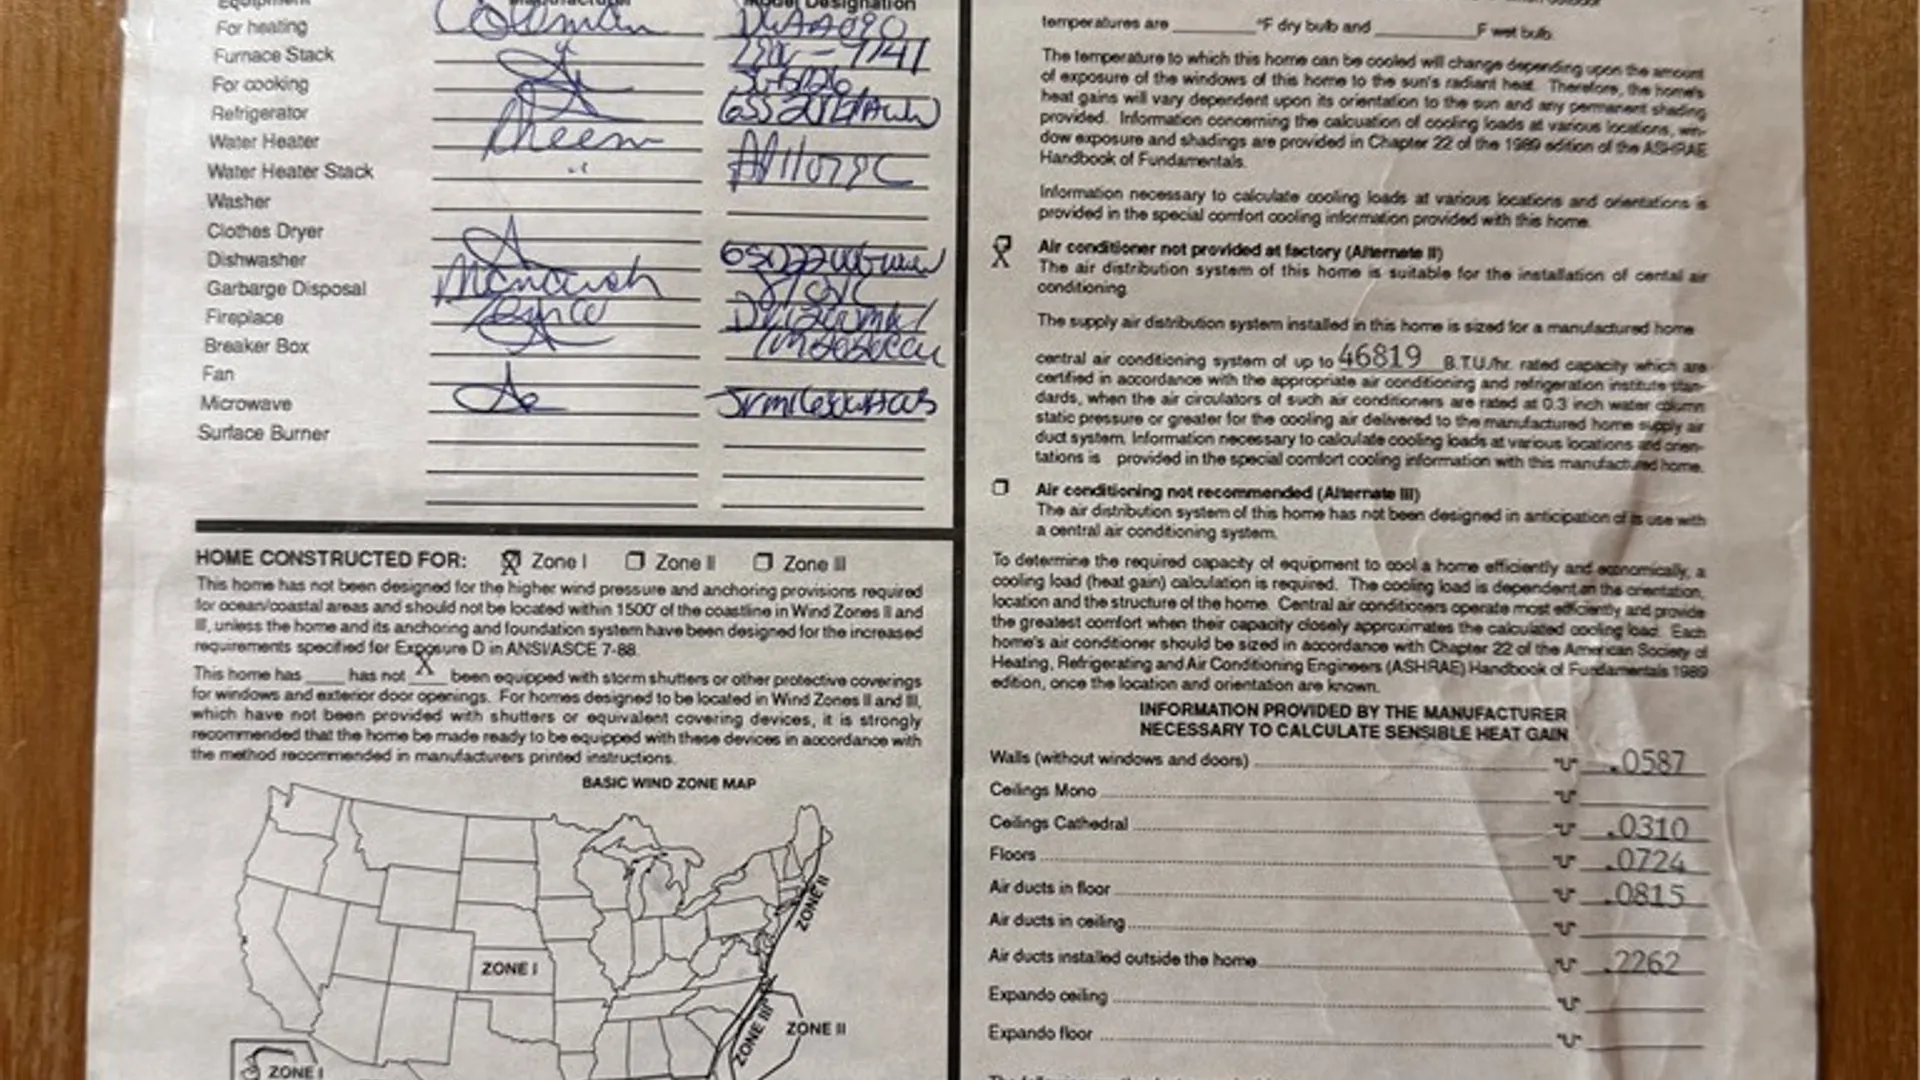 For heating Coleman
Furnace Stack
For cooking
Refrigerator
Water Heater Rheem
Water Heater Stack
Washer
Clothes Dryer
Dishwasher
Garbarge Disposal
Fireplace
Breaker Box
Fan
Microwave
Surface Burner
HOME CONSTRUCTED FOR: Zone I Zone II Zone III
This home has not been designed for the higher wind pressure and anchoring provisions required
for ocean/coastal areas and should not be located within 1500' of the coastline in Wind Zones II and
III, unless the home and its anchoring and foundation system have been designed for the increased
requirements specified for Exposure D in ANSI/ASCE 7-88.
This home has ____ has not X been equipped with storm shutters or other protective coverings
for windows and exterior door openings. For homes designed to be located in Wind Zones II and III,
which have not been provided with shutters or equivalent covering devices, it is strongly
recommended that the home be made ready to be equipped with these devices in accordance with
the method recommended in manufacturers printed instructions.
BASIC WIND ZONE MAP
ZONE II
ZONE I
ZONE III
ZONE II
ZONE I
temperatures are ____ °F dry bulb and ____ F wet bulb.
The temperature to which this home can be cooled will change depending upon the amount
of exposure of the windows of this home to the sun's radiant heat. Therefore, the home's
heat gains will vary dependent upon its orientation to the sun and any permanent shading
provided. Information concerning the calcuation of cooling loads at various locations, win-
dow exposure and shadings are provided in Chapter 22 of the 1989 edition of the ASHRAE
Handbook of Fundamentals.
Information necessary to calculate cooling loads at various locations and orientations is
provided in the special comfort cooling information provided with this home.
Air conditioner not provided at factory (Alternate II)
The air distribution system of this home is suitable for the installation of cental air
conditioning.
The supply air distribution system installed in this home is sized for a manufactured home
central air conditioning system of up to 46819 B.T.U./hr. rated capacity which are
certified in accordance with the appropriate air conditioning and refrigeration institute stan-
dards, when the air circulators of such air conditioners are rated at 0.3 inch water column
static pressure or greater for the cooling air delivered to the manufactured home supply air
duct system. Information necessary to calculate cooling loads at various locations and orien-
tations is provided in the special comfort cooling information with this manufactured home.
Air conditioning not recommended (Alternate III)
The air distribution system of this home has not been designed in anticipation of its use with
a central air conditioning system.
To determine the required capacity of equipment to cool a home efficiently and economically, a
cooling load (heat gain) calculation is required. The cooling load is dependent on the orientation,
location and the structure of the home. Central air conditioners operate most efficiently and provide
the greatest comfort when their capacity closely approximates the calculated cooling load. Each
home's air conditioner should be sized in accordance with Chapter 22 of the American Society of
Heating, Refrigerating and Air Conditioning Engineers (ASHRAE) Handbook of Fundamentals 1989
edition, once the location and orientation are known.
INFORMATION PROVIDED BY THE MANUFACTURER
NECESSARY TO CALCULATE SENSIBLE HEAT GAIN
Walls (without windows and doors) "U" .0587
Ceilings Mono "U"
Ceilings Cathedral "U" .0310
Floors "U" .0724
Air ducts in floor "U" .0815
Air ducts in ceiling "U"
Air ducts installed outside the home "U" .2262
Expando ceiling "U"
Expando floor "U"